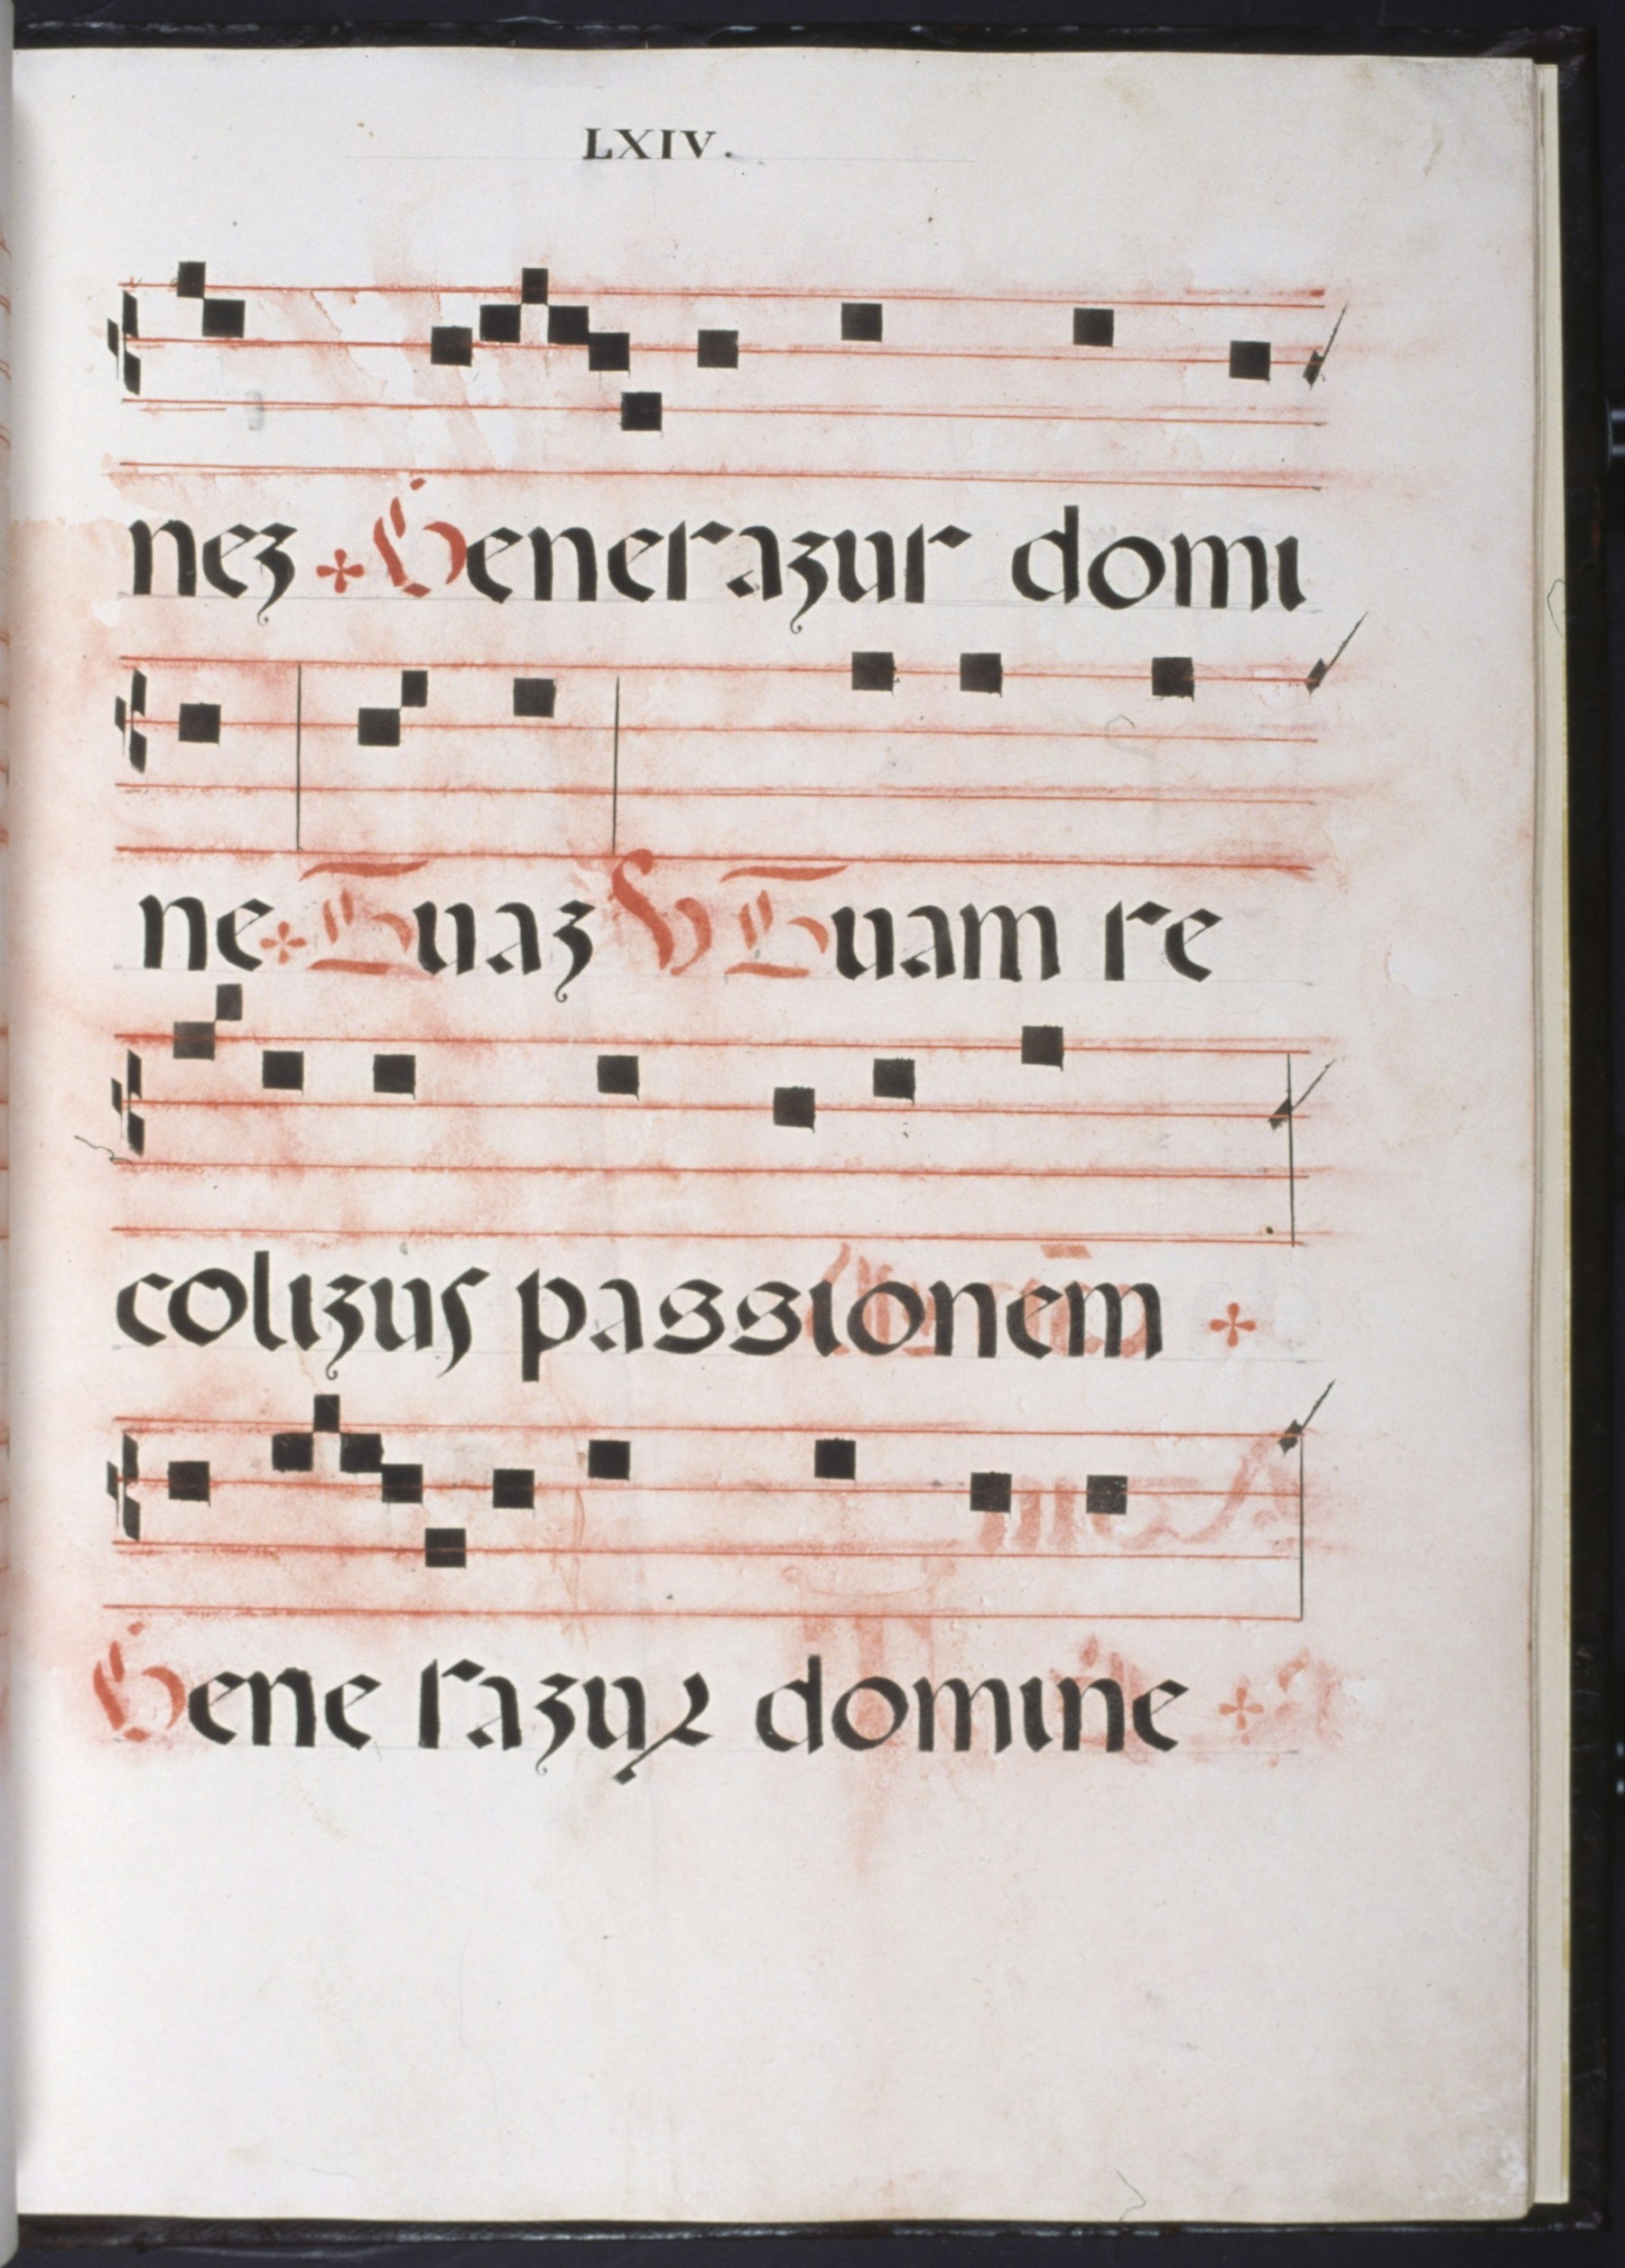 LXIV.
nem + Veneramur domi
ne + Tuam V Tuam re
colimus passionem +
Veneramur domine +